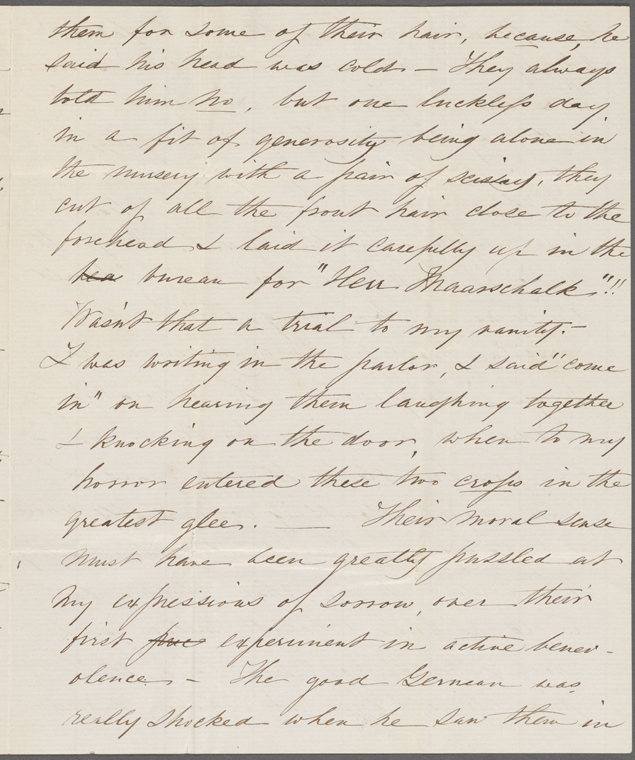 them for some of their hair, because, he
said his head was cold - They always
told him no, but one luckless day
in a fit of generosity being alone in
the nursery with a pair of scissars, they
cut of all the front hair close to the
forehead & laid it carefully up in the
bea bureau for "Herr Maarschalk"!!
Wasn't that a trial to my vanity. -
I was writing in the parlor, & said "come
in" on hearing them laughing together
& knocking on the door, when to my
horror entered these two crops in the
greatest glee. — Their moral sense
must have been greatly puzzled at
my expressions of sorrow, over their
first experiment in active benev-
olence - The good German was
really shocked when he saw them in